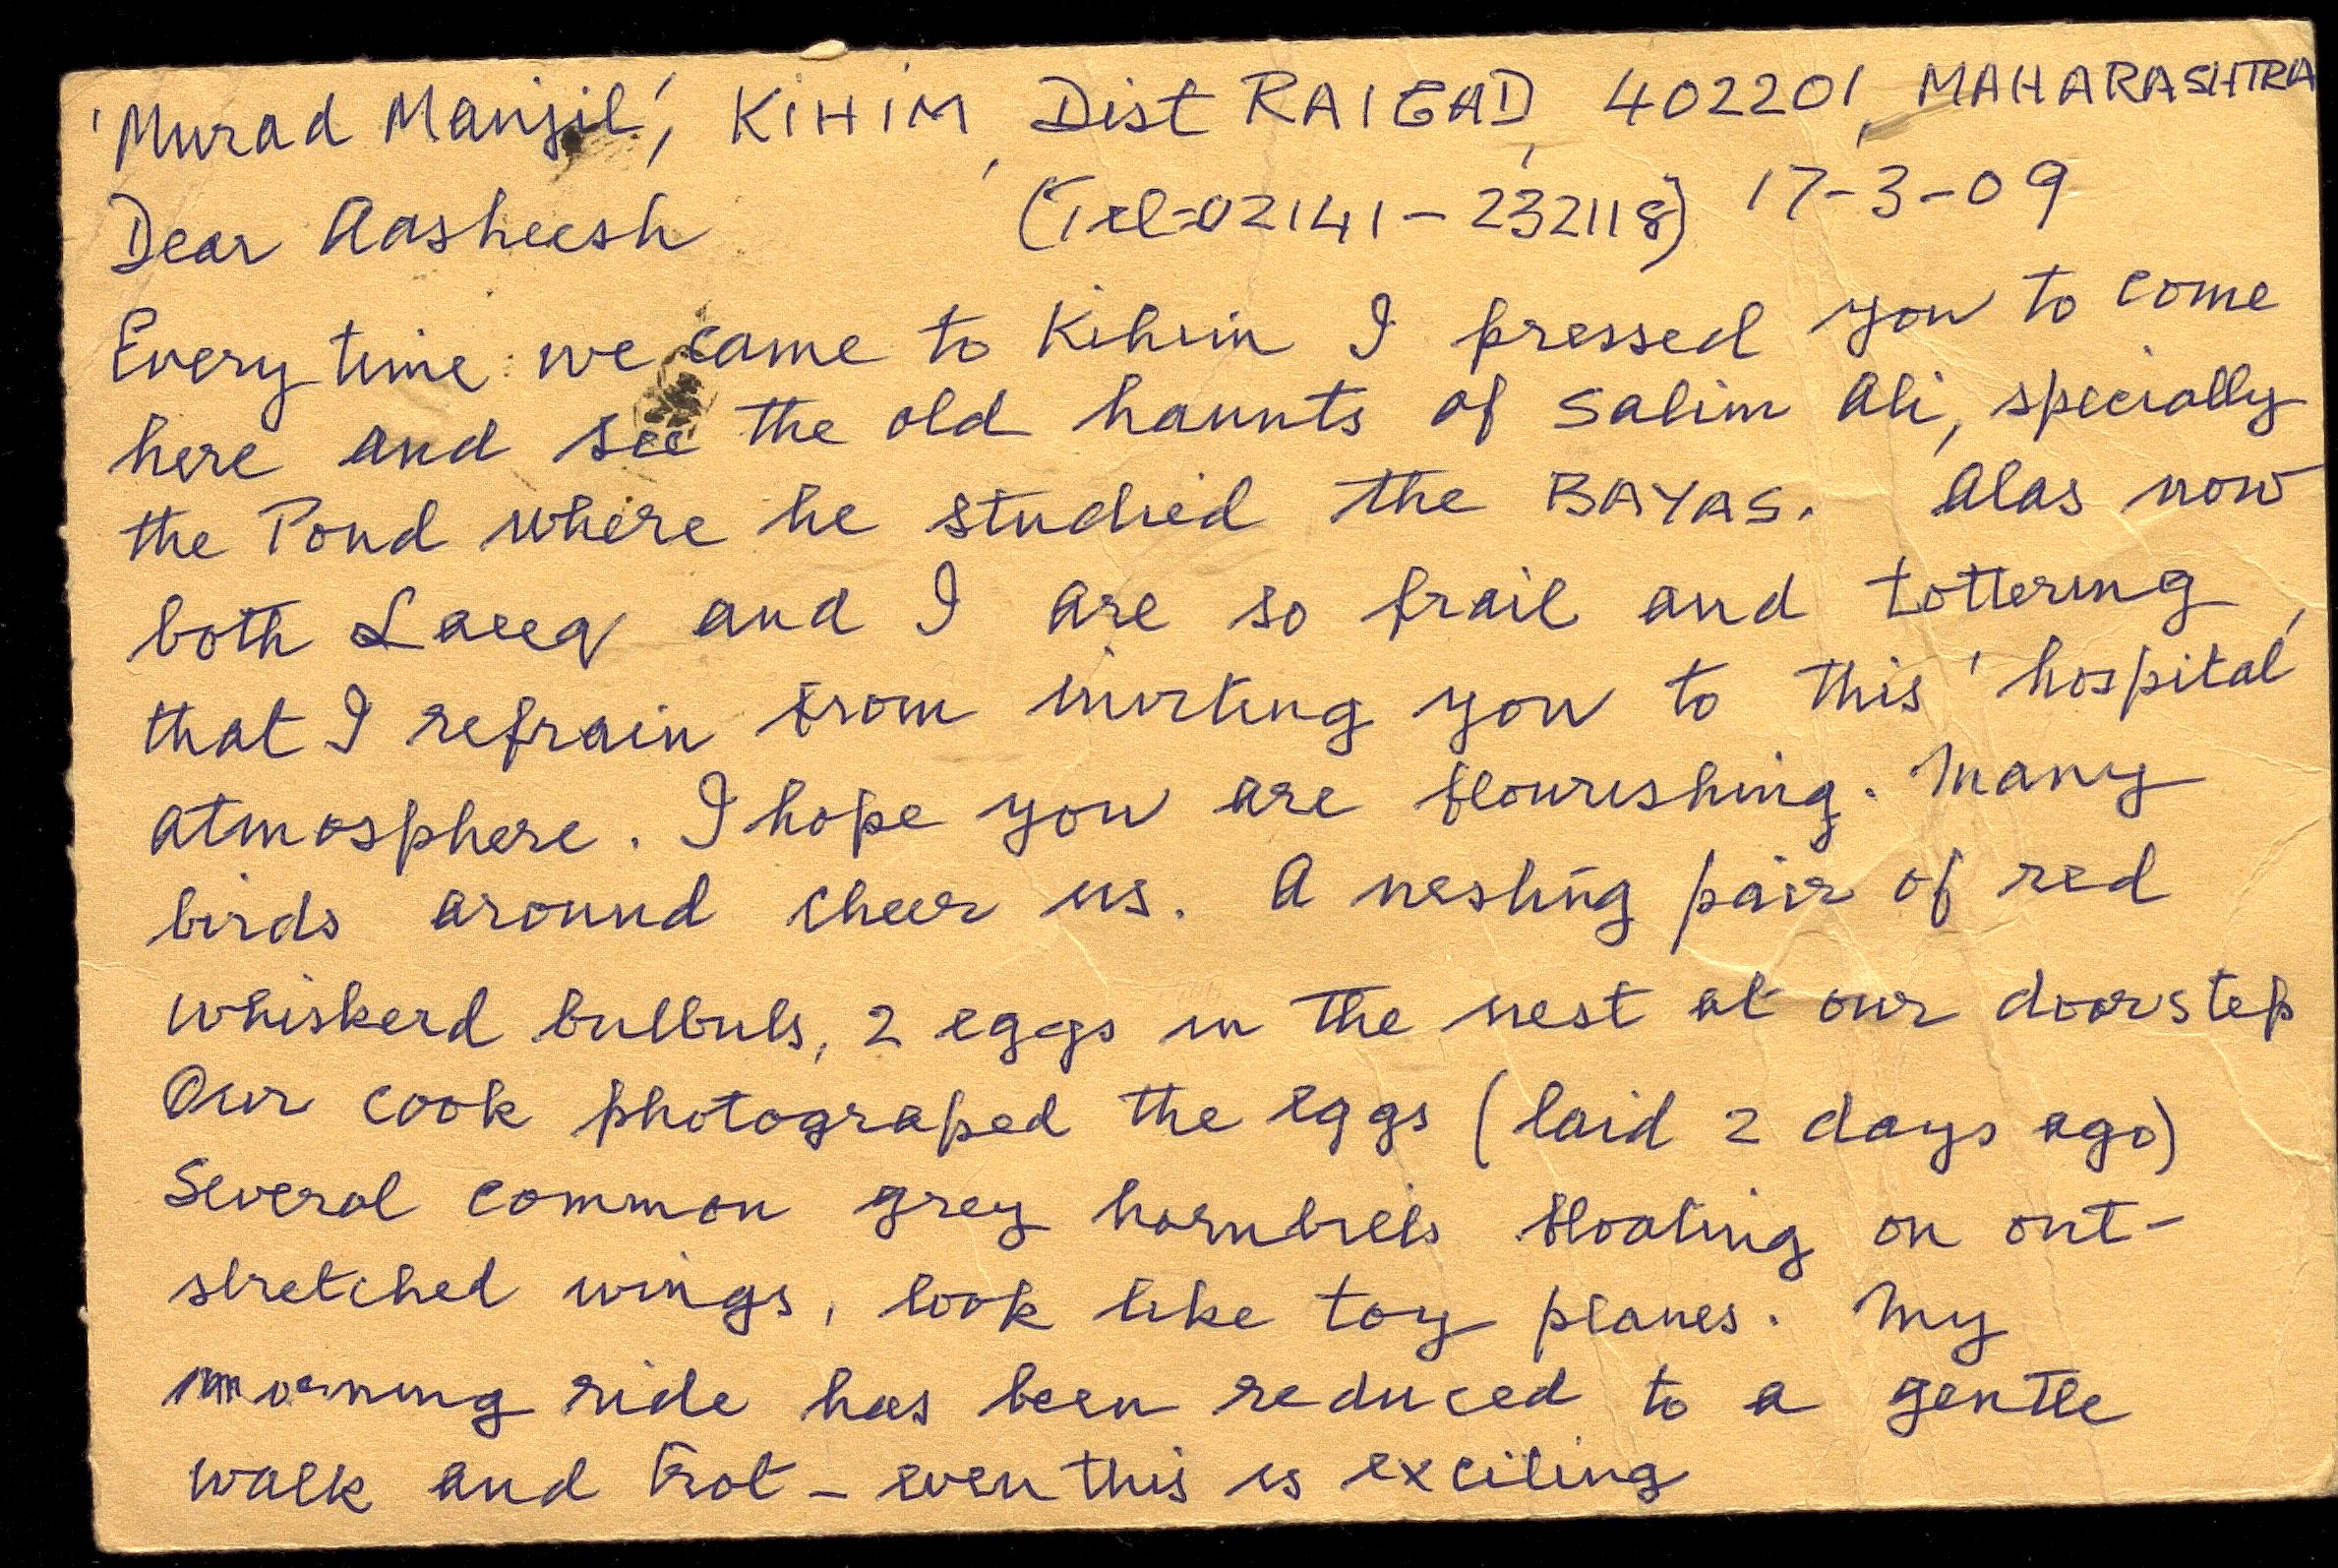 'Murad Manzil', KIHIM, Dist RAIGAD, 402201, MAHARASHTRA
Dear Aasheesh (Tel-02141-232118) 17-3-09
Every time we came to Kihim I pressed you to come
here and see the old haunts of Salim Ali, specially
the Pond where he studied the BAYAS. Alas now
both Laeeq and I are so frail and tottering,
that I refrain from inviting you to this 'hospital'
atmosphere. I hope you are flourishing. Many
birds around cheer us. A nesting pair of red
whiskerd bulbuls, 2 eggs in the nest at our doorstep
Our cook photographed the eggs (laid 2 days ago)
Several common grey hornbills floating on out-
stretched wings, look like toy planes. My
morning ride has been reduced to a gentle
walk and trot - even this is exciting